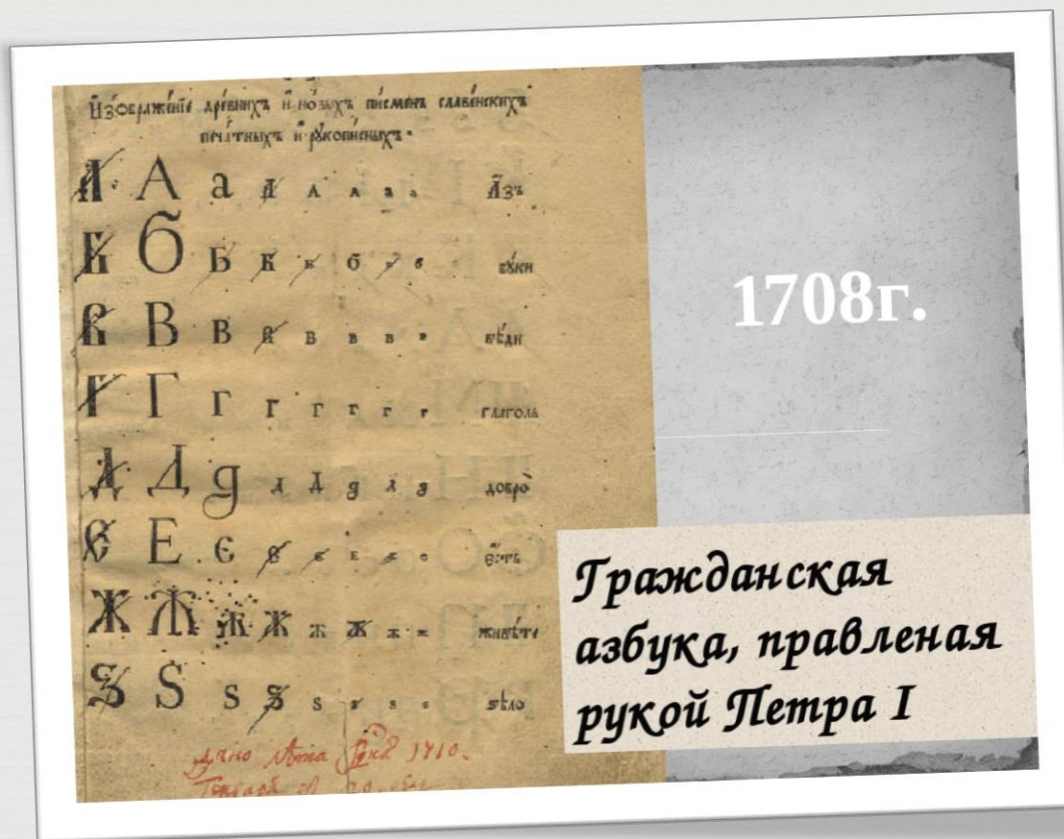 Изображеніе древнихъ и новыхъ писменъ славенскихъ
печатныхъ и рукописныхъ.
А А а А А А а а Азъ
Б Б Б Б Б б б б буки
В В В В В В В В вѣди
Г Г Г Г Г Г Г Г глаголь
Д Д д д д д д д добро
Є Е є є є е е е есть
Ж Ж ж ж ж ж ж ж живѣте
Ѕ Ѕ ѕ ѕ ѕ ѕ ѕ ѕ ѕѣло
Дано лѣта 1710.
1708г.
Гражданская
азбука, правленая
рукой Петра I